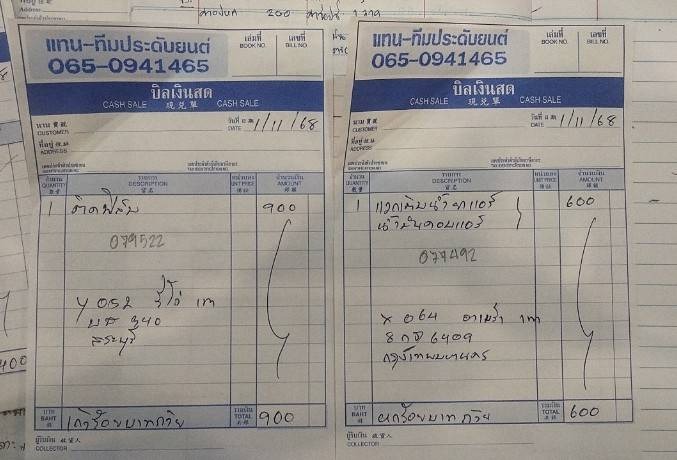 สารปรก 200
Address
แทน-ทีมประดับยนต์
065-0941465
เล่มที่
BOOK NO.
เลขที่
BILL NO.
บิลเงินสด
CASH SALE 現兌單 CASH SALE
นาม
CUSTOMER
วันที่
DATE 1/11/68
ที่อยู่
ADDRESS
เลขประจำตัวผู้เสียภาษีอากร
จำนวน
QUANTITY
รายการ
DESCRIPTION
หน่วยละ
UNIT PRICE
จำนวนเงิน
AMOUNT
1 ติดฟิล์ม 900
079522
Y 052 วีโก้ เทา
บท 340
สระบุรี
บาท
BAHT
เก้าร้อยบาทถ้วน
รวมเงิน
TOTAL
900
ผู้รับเงิน 收貨人
COLLECTOR
แทน-ทีมประดับยนต์
065-0941465
เล่มที่
BOOK NO.
เลขที่
BILL NO.
บิลเงินสด
CASH SALE 現兌單 CASH SALE
นาม
CUSTOMER
วันที่
DATE 1/11/68
ที่อยู่
ADDRESS
เลขประจำตัวผู้เสียภาษีอากร
จำนวน
QUANTITY
รายการ
DESCRIPTION
หน่วยละ
UNIT PRICE
จำนวนเงิน
AMOUNT
1 แวคเติมน้ำยาแอร์ 600
น้ำมันคอมแอร์
077492
X 064 อาเมร่า เทา
8 กฐ 6409
กรุงเทพมหานคร
บาท
BAHT
หกร้อยบาทถ้วน
รวมเงิน
TOTAL
600
ผู้รับเงิน 收貨人
COLLECTOR